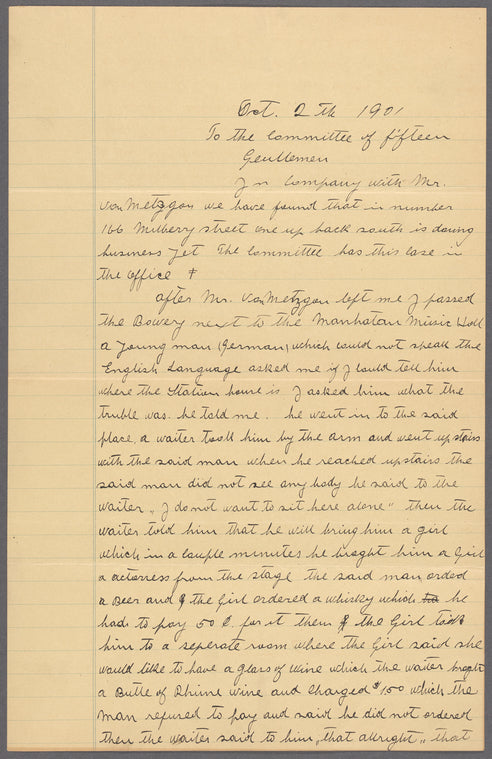 Oct. 2th 1901
To the Committee of fifteen
Gentlemen
In Company with Mr.
von Metzgon we have found that in number
166 Mulbery street one up back south is doing
business jet The Committee has this case in
the office +
after Mr. von Metzgon left me I passed
the Bowery next to the Manhatan Music Hall
a Young man (German) which could not speak the
English Language asked me if I could tell him
where the Station house is I asked him what the
truble was. he told me. he went in to the said
place, a waiter took him by the arm and went up stairs
with the said man when he reached upstairs the
said man did not see any body he said to the
waiter „I do not want to sit here alone" then the
waiter told him that he will bring him a girl
which in a couple minutes he braght him a Girl
a actorress from the stage the said man orded
a Beer and the Girl ordered a whisky which he
had to pay 50 C. for it them the Girl took
him to a seperate room where the Girl said she
would like to have a glass of wine which the waiter braght
a Buttle of Rhine wine and charged $1.50 which the
man refused to pay and said he did not ordered
then the waiter said to him „that allright" that